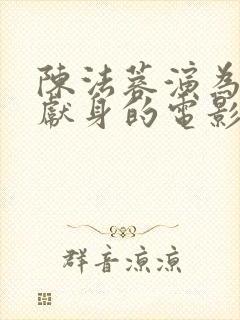 陳法蓉演為
獻身的電影
群音涼涼